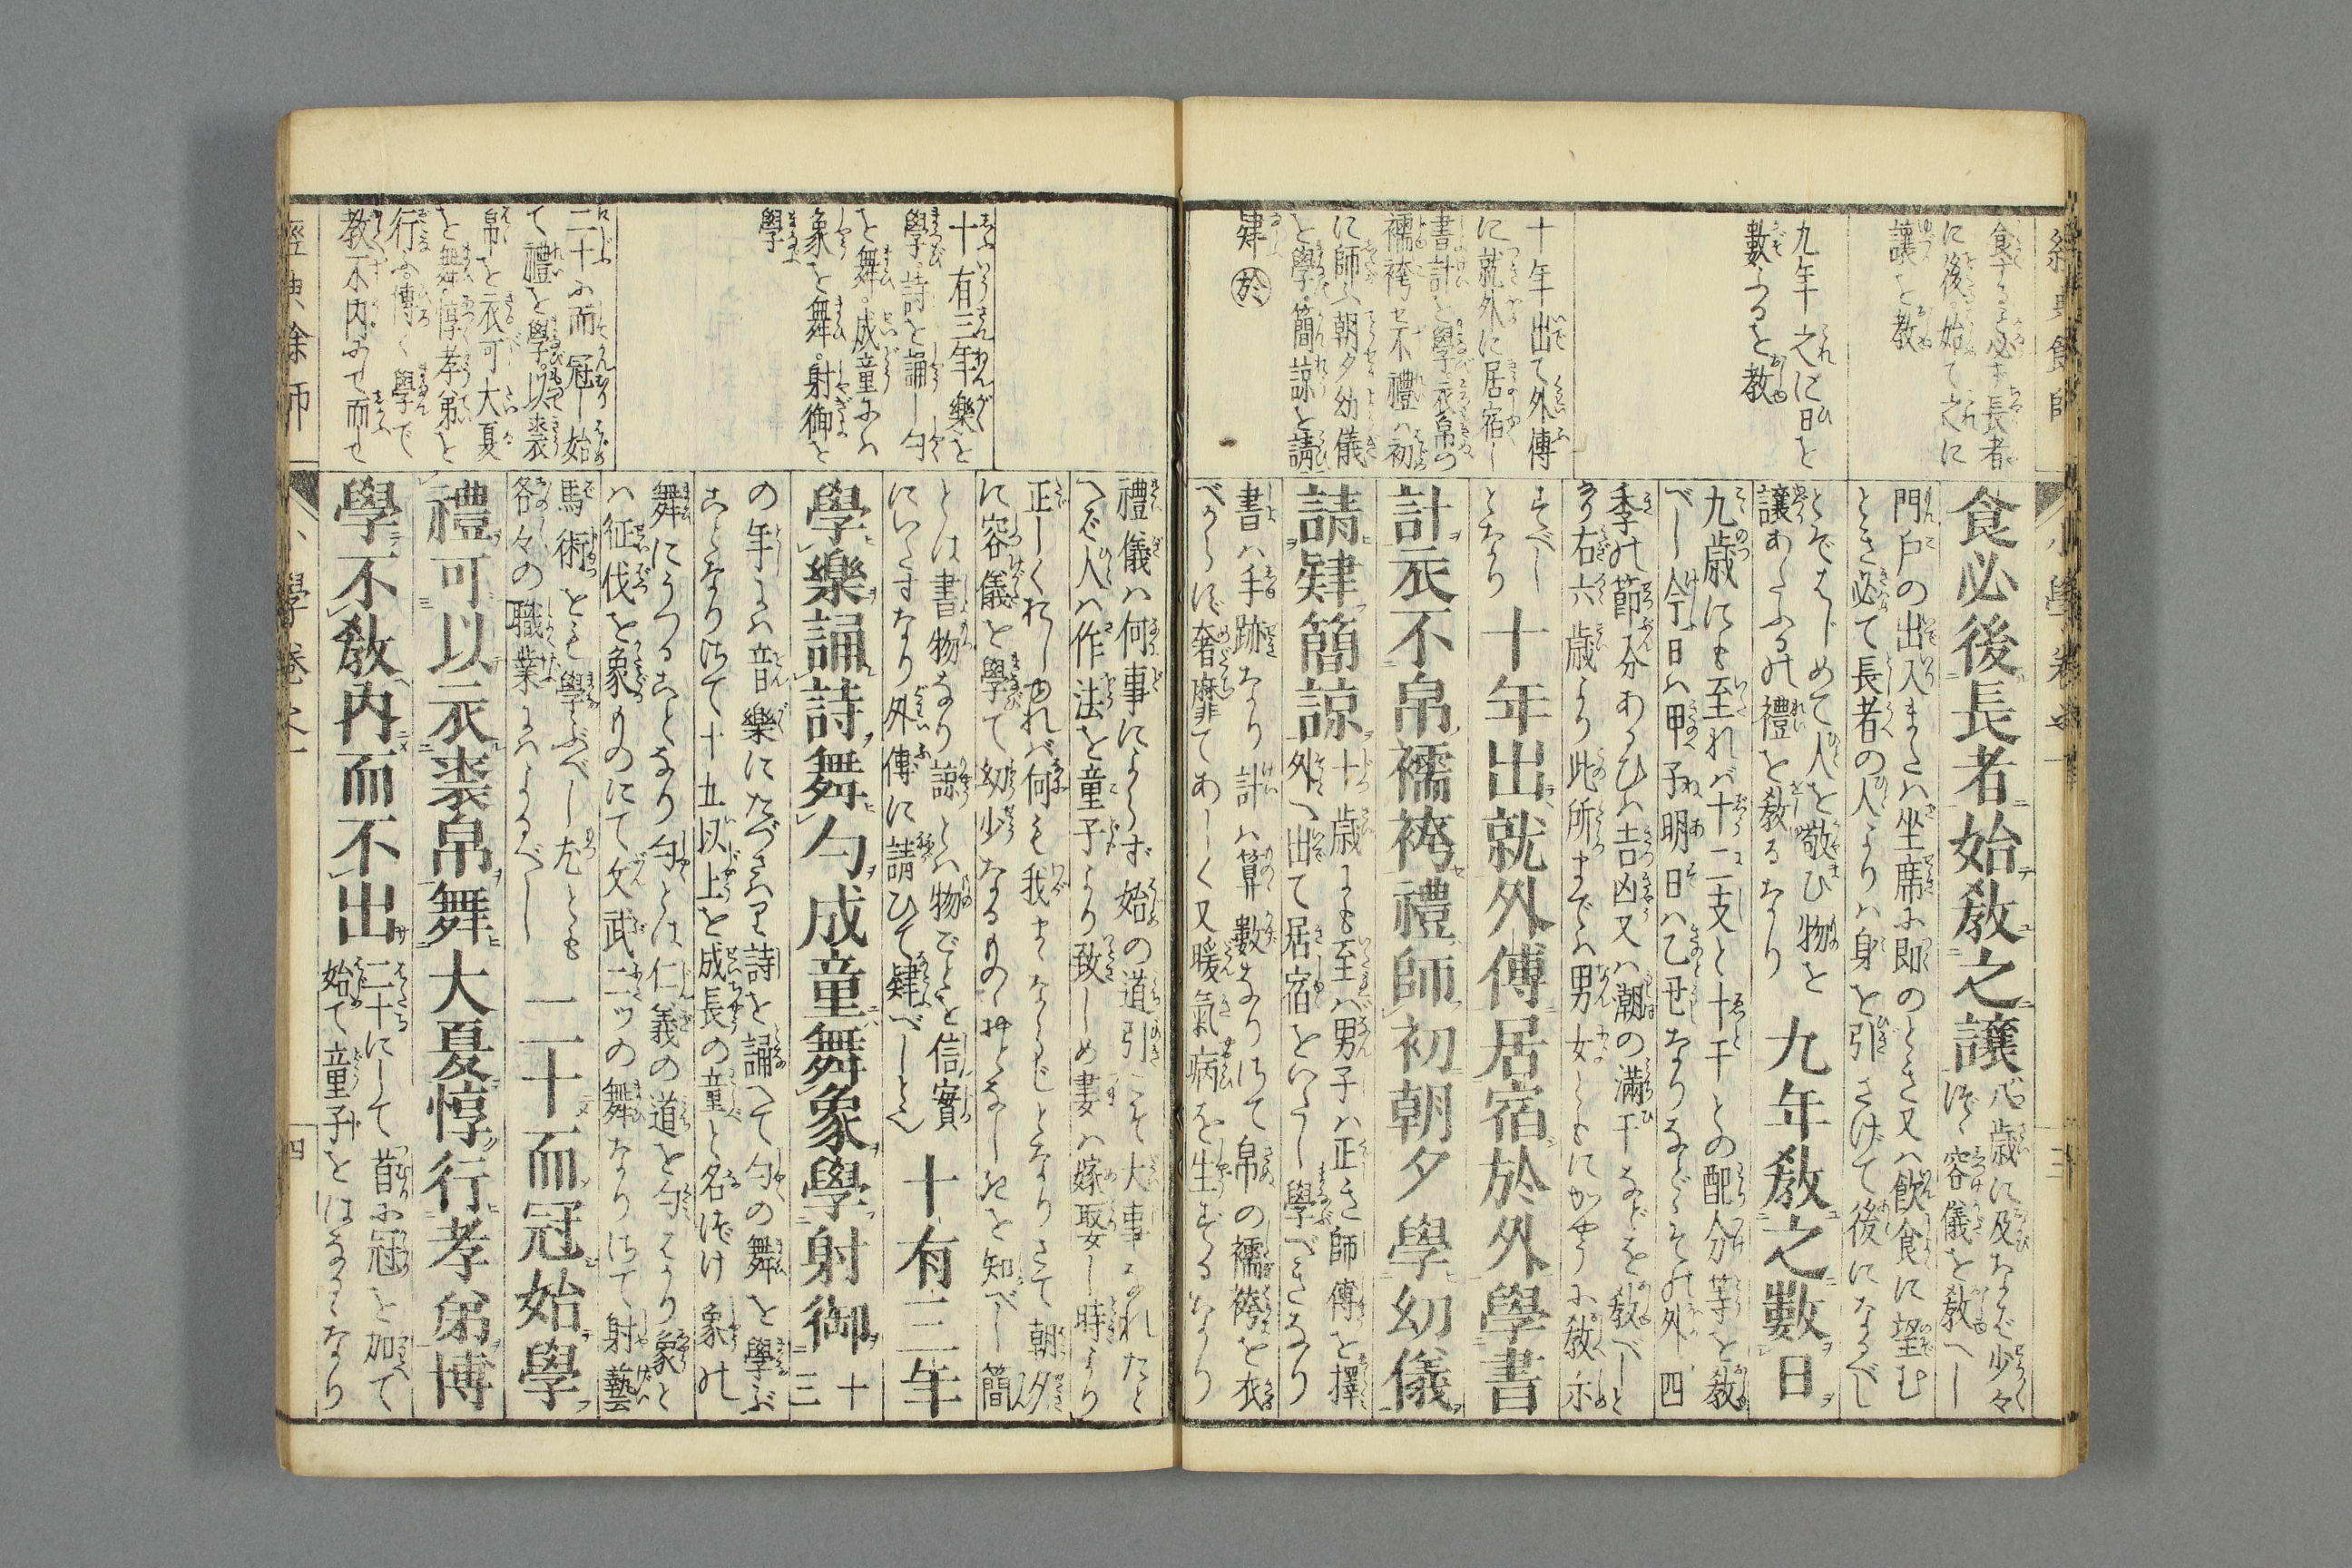 食する必ず長者
に後る始て之に
讓を教
九年之に日を
數ふるを教
十年出て外傅
に就外に居宿し
書計を學衣帛の
襦袴せ不禮ハ初
に師ふ朝夕幼儀
を學簡諒を請
肄 於
食必後長者始教之讓
八歳に及なバ少々
づゝ容儀を教へし
門戸の出入または坐席に即のとき又ハ飲食に望む
とき必て長者の人よりハ身を引さげて後になるべし
とぞはじめて人を敬ひ物を
讓あたふるの禮を教るなり
九年教之數日
九歳にも至れバ十二支と十干との配分等を教
べし今日ハ甲子明日ハ乙丑なりなどゝその外四
季の節分あるひハ吉凶又ハ潮の滿干などを教べしと
右六歳より此所までハ男女ともにかやうに教示
すべし
となり
十年出就外傅居宿於外學書
計衣不帛襦袴禮師初朝夕學幼儀
請肄簡諒
十歳にも至バ男子ハ正き師傅を擇
外へ出て居宿をいたし學べきなり
書ハ手跡なり計ハ算數なりさて帛の襦袴を衣
べからず奢靡てあしく又暖氣病を生ずるなり
十有三年樂を
學詩を誦し勺
を舞成童にハ
象を舞射御を
學
二十に而冠し始
て禮を學以裘
帛を衣可大夏
を舞惇孝弟を
行ふ博く學で
教不内にて而せ
禮儀ハ何事によらず始の道引こそ大事なれたと
へバ人ハ作法を童子より致しめ妻ハ嫁娶し時より
正しくれしめれバ何も我まゝならじとなりさて朝夕
に容儀を學て幼少なるものゝおとなしきを知べし簡
とは書物なり諒とハ物ごとを信實
にいたすなり外傅に請ひて肄べしと也
十有三年
學樂誦詩舞勺成童舞象學射御
十
三
の年にハ音樂にたづさハり詩を誦へて勺の舞を學ぶ
ことなりさて十五以上を成長の童と名づけ象の
舞にうつることなり勺とは仁義の道を勺はかり象と
ハ征伐を象りのにて文武二ツの舞なりさて射藝
馬術をも學ぶべし尤とも
各々の職業にハよるべし
二十而冠始學
禮可以衣裘帛舞大夏惇行孝弟博
學不教内而不出
二十にして首に冠を加て
始て童子をはなるゝなり
四